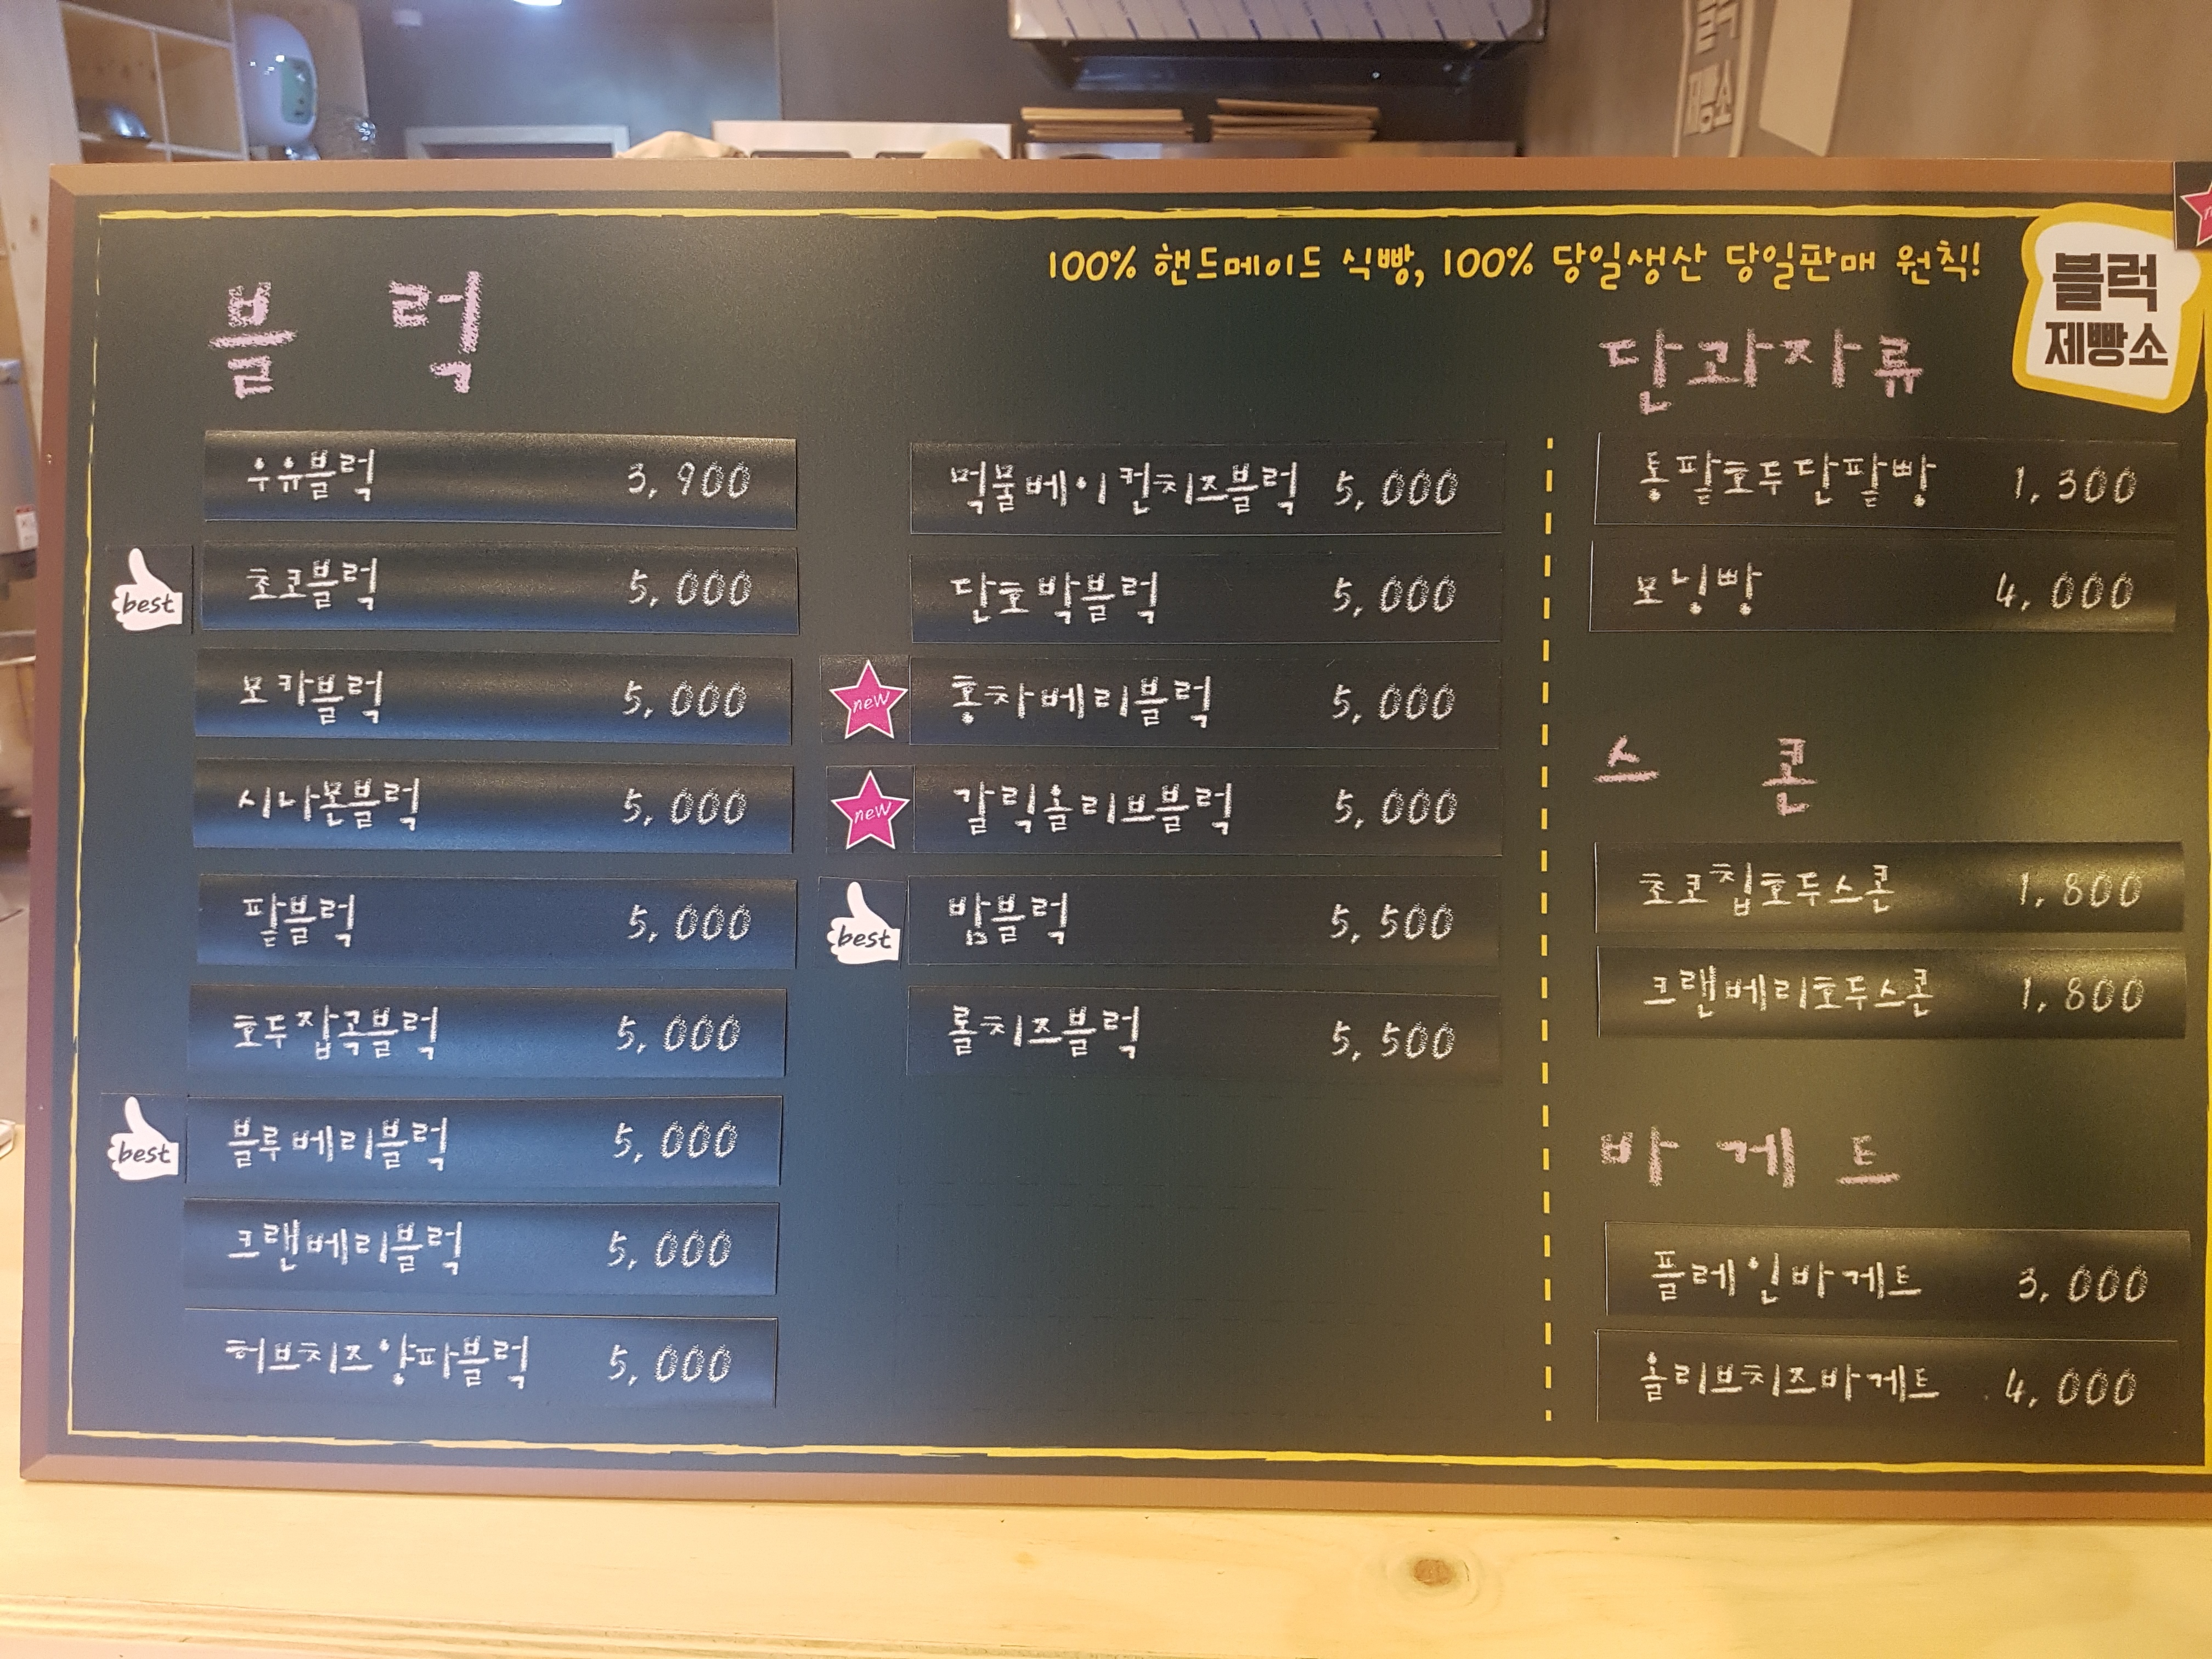 100% 핸드메이드 식빵, 100% 당일생산 당일판매 원칙!
블럭
제빵소
블럭
우유블럭 3,900
best 초코블럭 5,000
모카블럭 5,000
시나몬블럭 5,000
팥블럭 5,000
호두잡곡블럭 5,000
best 블루베리블럭 5,000
크랜베리블럭 5,000
허브치즈양파블럭 5,000
먹물베이컨치즈블럭 5,000
단호박블럭 5,000
new 홍차베리블럭 5,000
new 갈릭올리브블럭 5,000
best 밤블럭 5,500
롤치즈블럭 5,500
단과자류
통팥호두단팥빵 1,300
모닝빵 4,000
스콘
초코칩호두스콘 1,800
크랜베리호두스콘 1,800
바게트
플레인바게트 3,000
올리브치즈바게트 4,000
제빵소